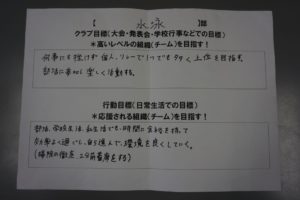 【 水泳 】部
クラブ目標(大会・発表会・学校行事などでの目標)
*高いレベルの組織(チーム)を目指す!
何事にも挫けず個人、リレーで1つでも多く上位を目指す。
部活に幸せに楽しく活動する。
行動目標(日常生活での目標)
*応援される組織(チーム)を目指す!
部活、学校生活、私生活でも、時間に余裕を持って
効率よく過ごし、自ら進んで、環境を良くしていく。
(掃除の徹底、2分前着席をする)